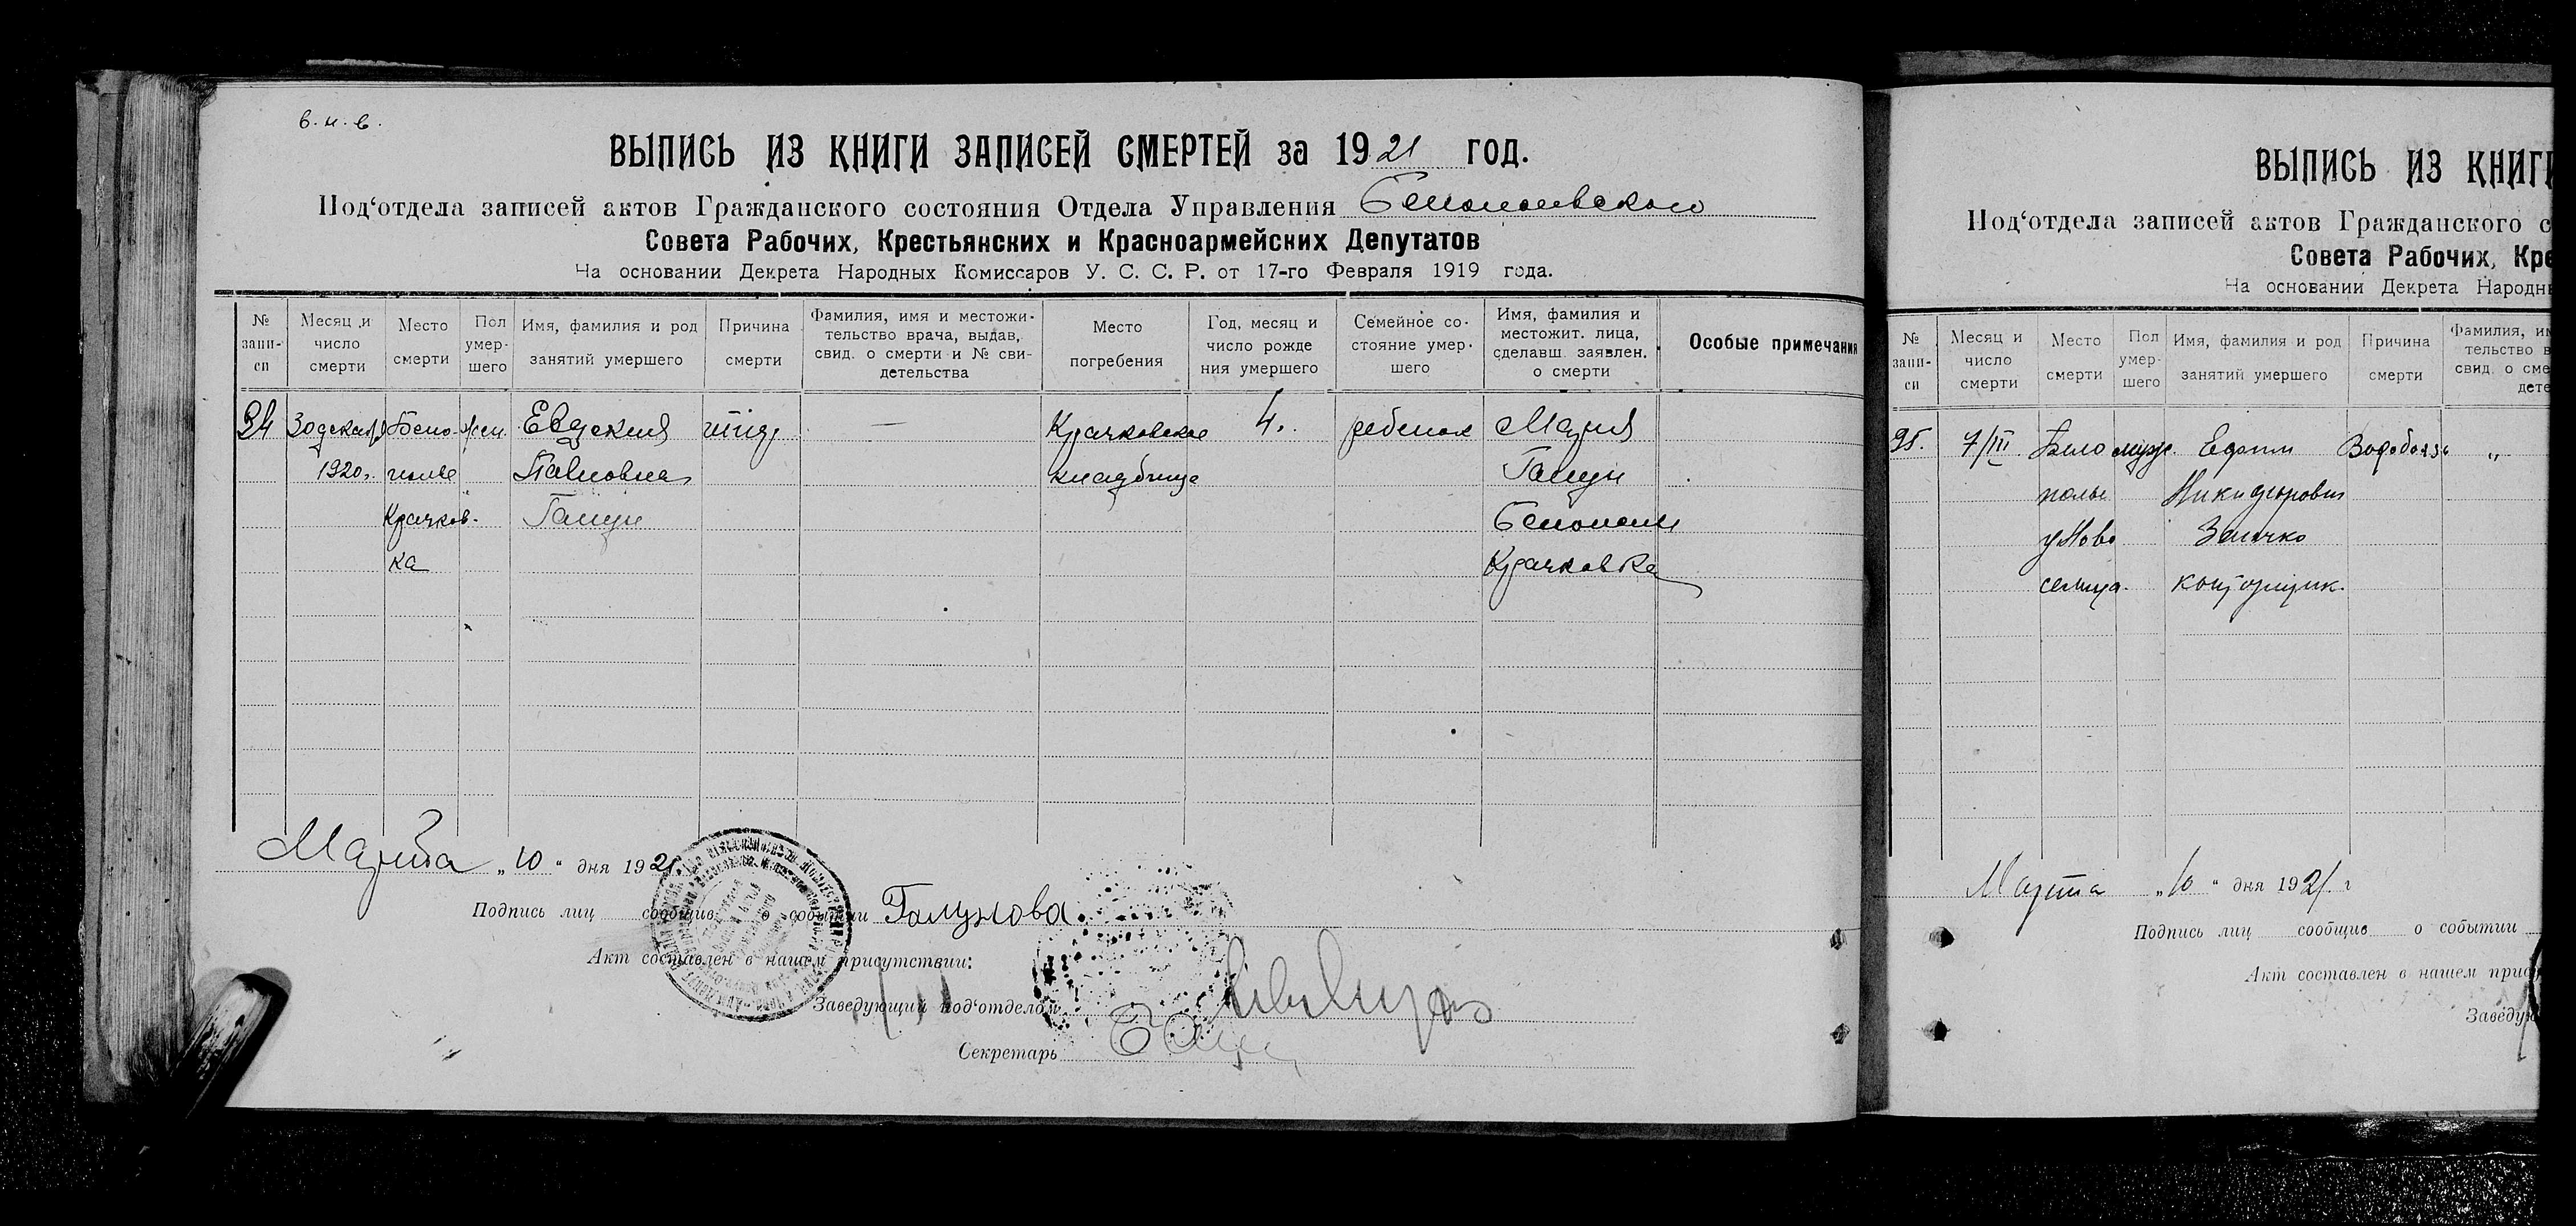 в. н. в.
ВЫПИСЬ ИЗ КНИГИ ЗАПИСЕЙ СМЕРТЕЙ за 1921 год.
Под‘отдела записей актов Гражданского состояния Отдела Управления
Совета Рабочих, Крестьянских и Красноармейских Депутатов
На основании Декрета Народных Комиссаров У. С. С. Р. от 17-го Февраля 1919 года.
№ запи- си
Месяц и число смерти
Место смерти
Пол умер- шего
Имя, фамилия и род занятий умершего
Причина смерти
Фамилия, имя и местожи- тельство врача, выдав, свид. о смерти и № сви- детельства
Место погребения
Год, месяц и число рожде ния умершего
Семейное со- стояние умер- шего
Имя, фамилия и местожит. лица, сделавш. заявлен. о смерти
Особые примечания
94 30 декабря Бело- жен. Евдокия — Крачковское 4. ребенок Мария
1920г. полье Павловна кладбище Галун
Крачков- Галун Белополье
ка Крачковка
Марта „10“ дня 1921
Подпись лиц сообщив о событии Галунова
Акт составлен в нашем присутствии:
Заведующий под‘отделом
Секретарь
ВЫПИСЬ ИЗ КНИГИ
Под‘отдела записей актов Гражданского с
Совета Рабочих, Кре
На основании Декрета Народн
№ запи- си
Месяц и число смерти
Место смерти
Пол умер- шего
Имя, фамилия и род занятий умершего
Причина смерти
Фамилия, им тельство в свид. о сме дете
95. 7/III Бело муж. Ефрим Водобоязнь „
полье Никифорович
Ново
селица. конторщик.
Марта „10“ дня 1921 г
Подпись лиц сообщив о событии
Акт составлен в нашем прис
Заведую